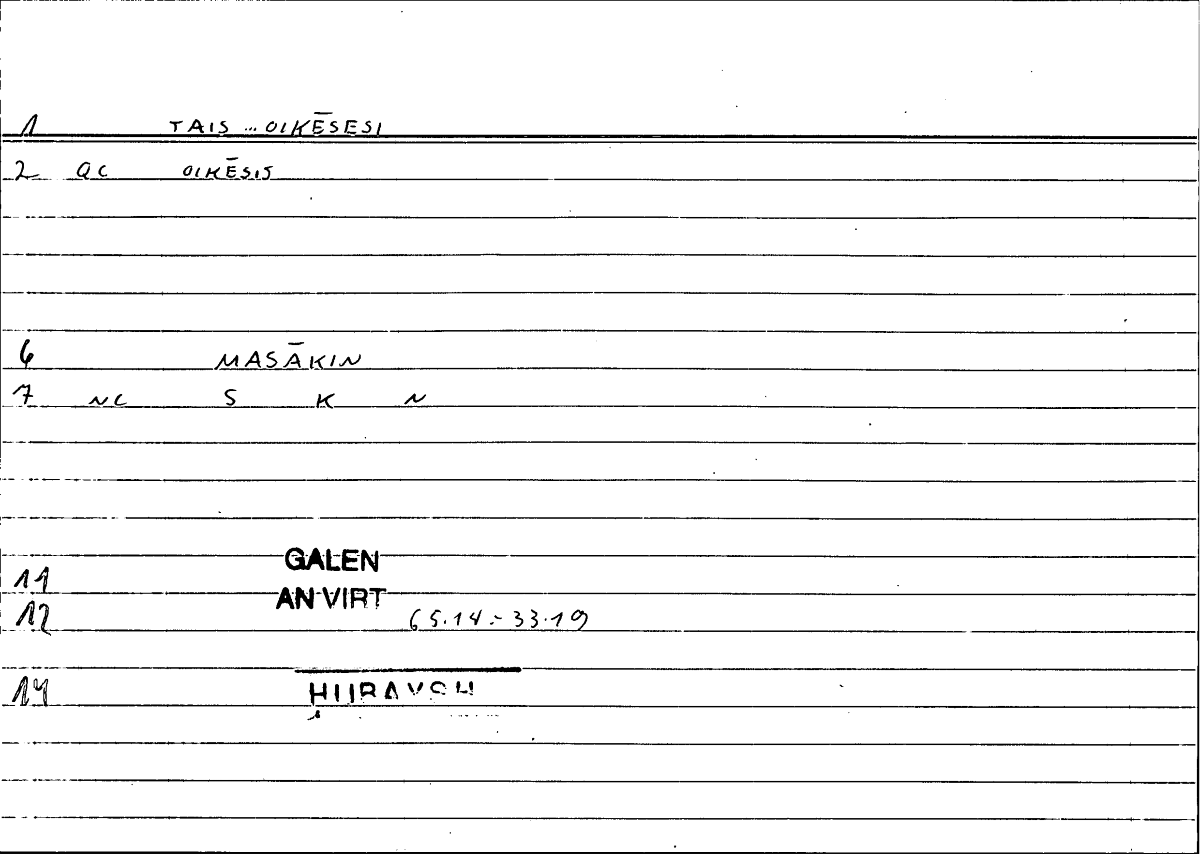 1 TAIS ... OIKĒSESI
2 QC OIKĒSIS
6 MASĀKIN
7 NC S K N
GALEN
11
AN VIRT
12 65.14 = 33.19
14 HUBAYSH